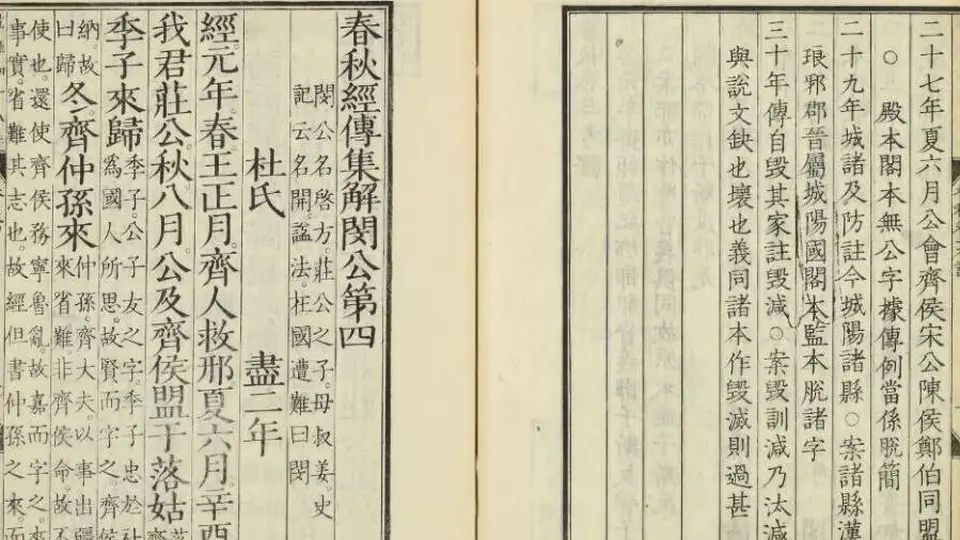 二十七年夏六月公會齊侯宋公陳侯鄭伯同盟
○殿本閣本無公字據傳例當係脫簡
二十九年城諸及防註今城陽諸縣○案諸縣漢
琅邪郡晉屬城陽國閣本監本脫諸字
三十年傳自毀其家註毀減○案毀訓減乃汰減
與說文缺也壞也義同諸本作毀滅則過甚
春秋經傳集解閔公第四
閔公名啓方。莊公之子。母叔姜。史
記云名開。諡法。在國遭難曰閔
杜氏 盡二年
經。元年。春。王正月。齊人救邢夏六月辛酉
我君莊公。秋八月。公及齊侯盟于落姑
季子來歸
季子。公子友之字。季子忠於社
爲國人所思。故賢而字之。齊侯
納。故
曰歸
冬。齊仲孫來
仲孫。齊大夫。以事出疆
來省難。非齊侯命。故不
使也。還使齊侯務寧魯亂。故嘉而字之。來
事實。省難其志也。故經但書仲孫之來。而